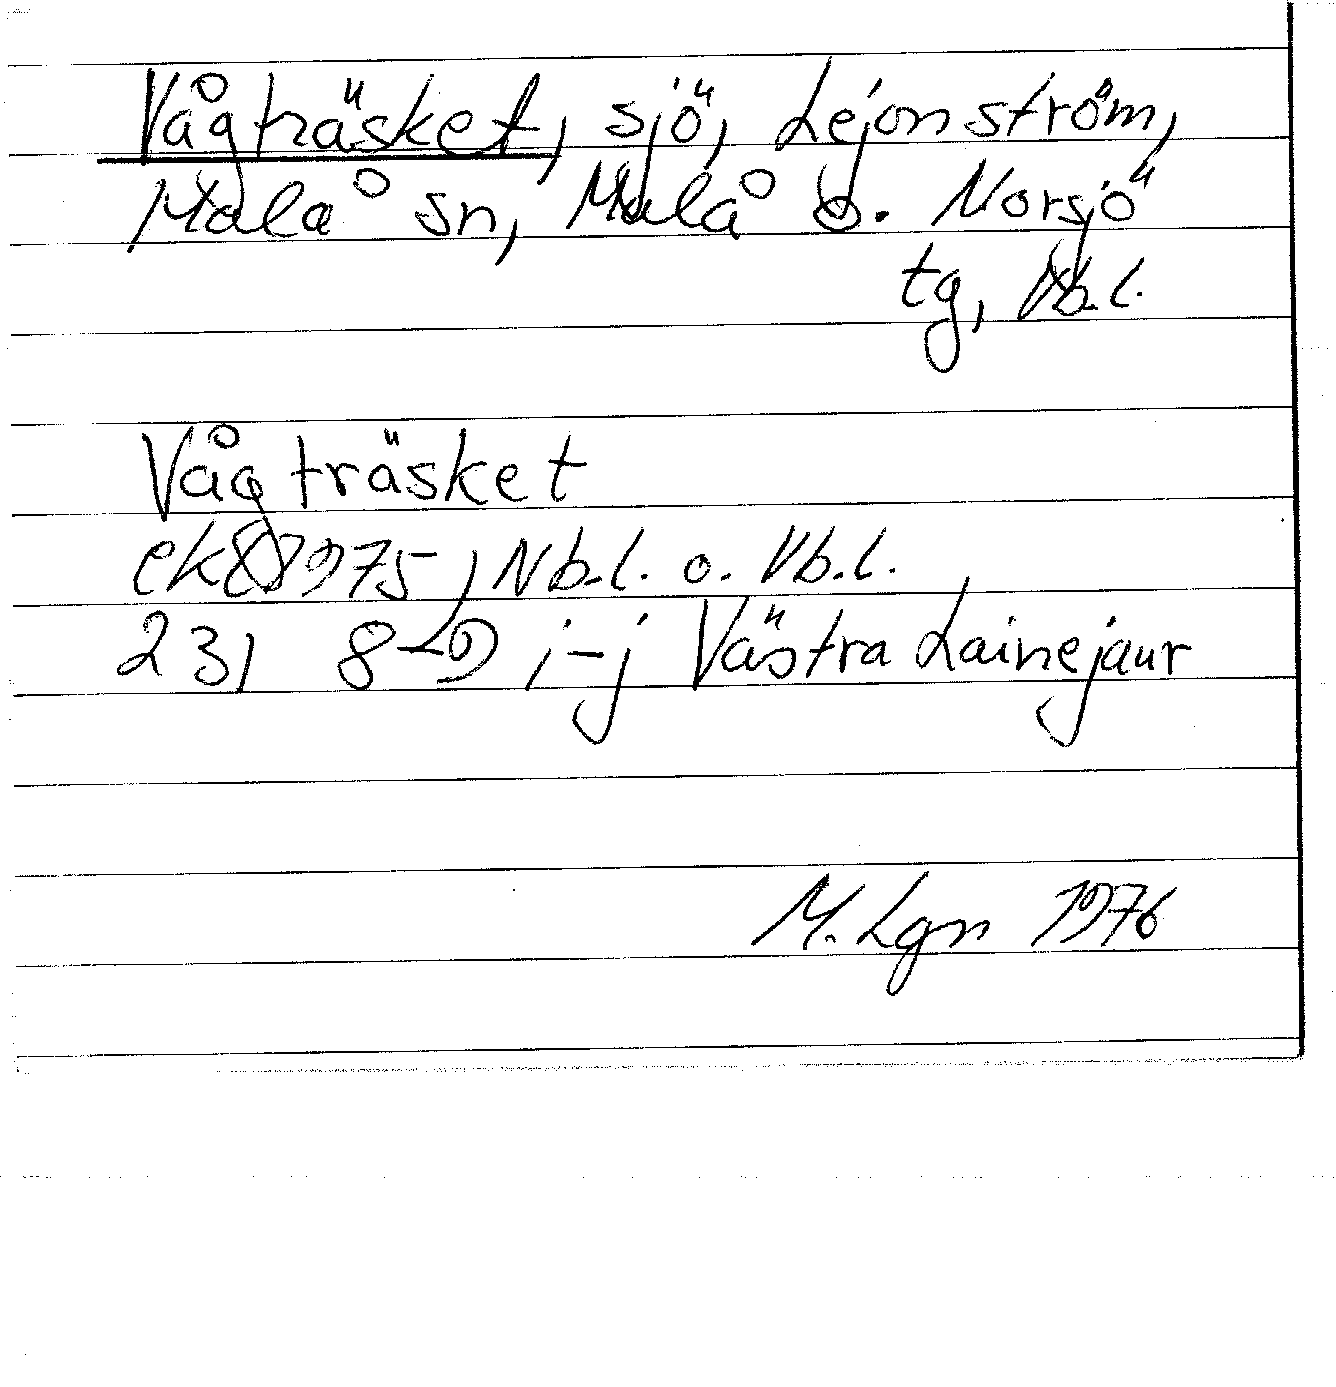 Vågträsket, sjö, Lejonström,
Malå sn, Malå o. Norsjö
tg, Vb.l.
Vågträsket
ek 1975, Nb.l. o. Vb.l.
23I 8-9 i-j Västra Lainejaur
M. Lgn 1976